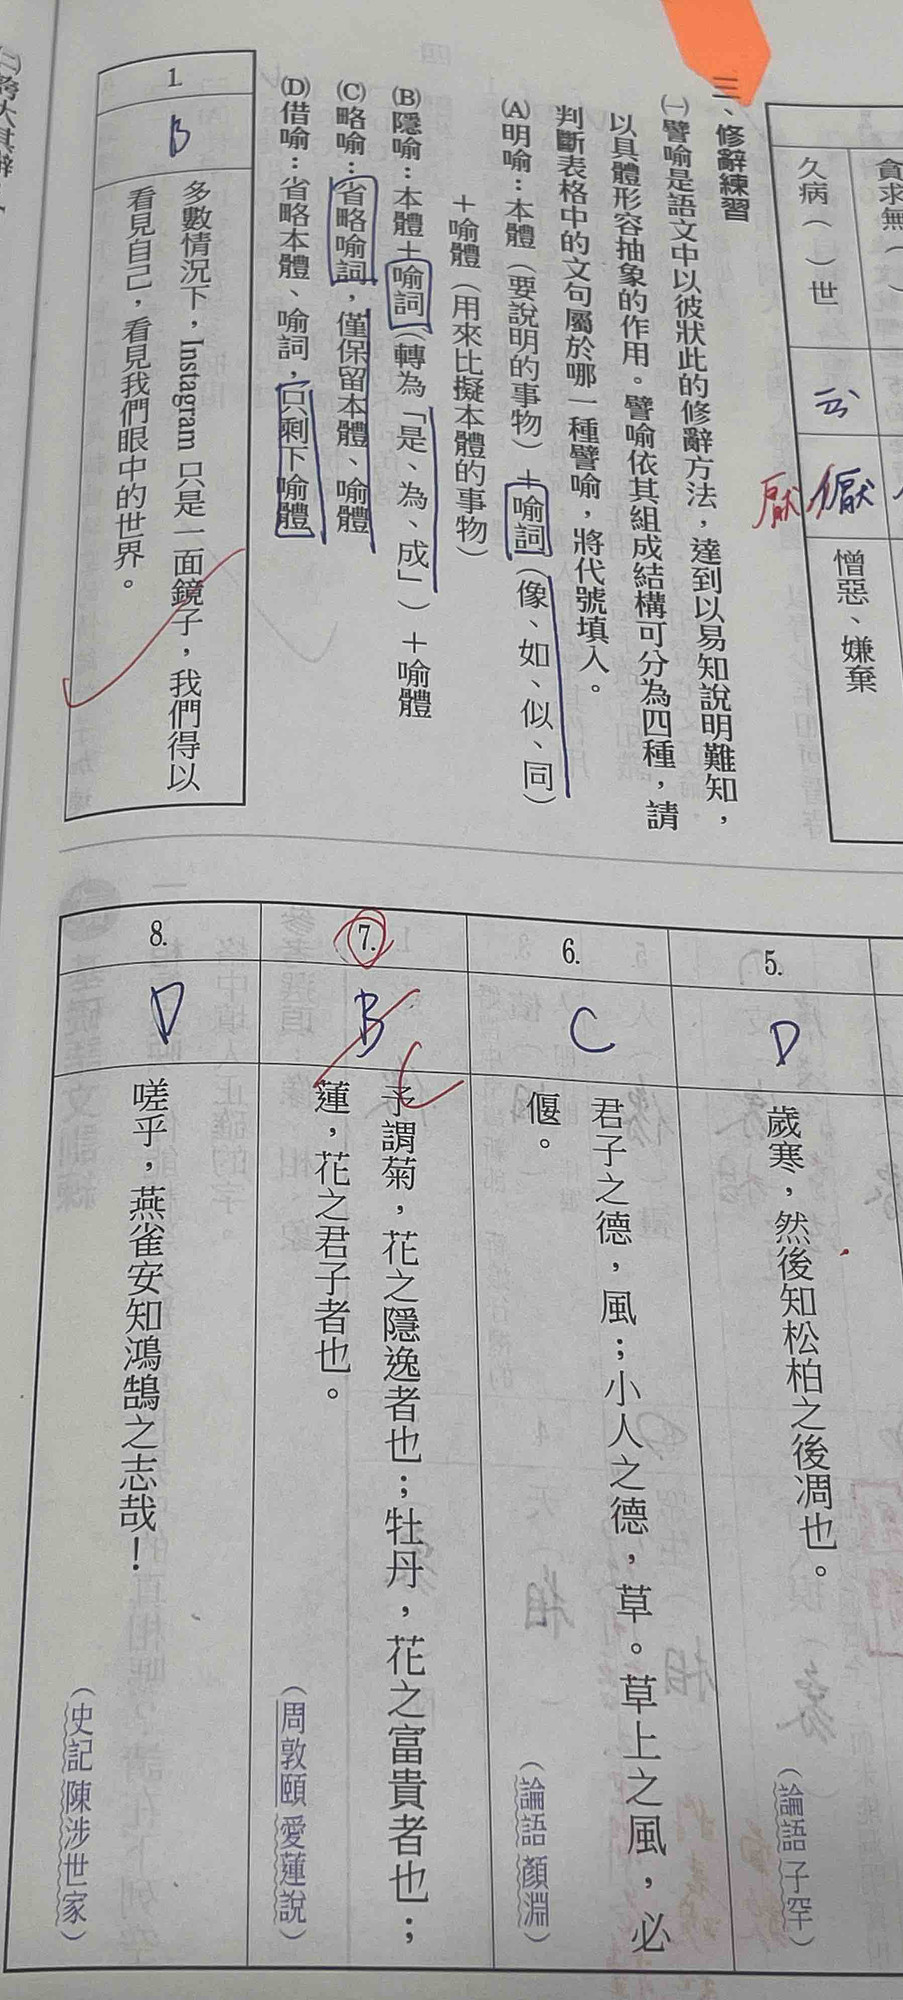 貪求無（　）
久病（　）世
云
厭
憎惡、嫌棄
三、修辭練習
㈠譬喻是語文中以彼狀此的修辭方法，達到以易知說明難知，
以具體形容抽象的作用。譬喻依其組成結構可分為四種，請
判斷表格中的文句屬於哪一種譬喻，將代號填入。
(A)明喻：本體（要說明的事物）＋喻詞（像、如、似、同）
＋喻體（用來比擬本體的事物）
(B)隱喻：本體＋喻詞（轉為「是、為、成」）＋喻體
(C)略喻：省略喻詞，僅保留本體、喻體
(D)借喻：省略本體、喻詞，只剩下喻體
1.
B
多數情況下，Instagram 只是一面鏡子，我們得以
看見自己，看見我們眼中的世界。
5.
D
歲寒，然後知松柏之後凋也。
（論語 子罕）
6.
C
君子之德，風；小人之德，草。草上之風，必
偃。
（論語 顏淵）
7.
B
C
予謂菊，花之隱逸者也；牡丹，花之富貴者也；
蓮，花之君子者也。
（周敦頤 愛蓮說）
8.
D
嗟乎，燕雀安知鴻鵠之志哉！
（史記 陳涉世家）